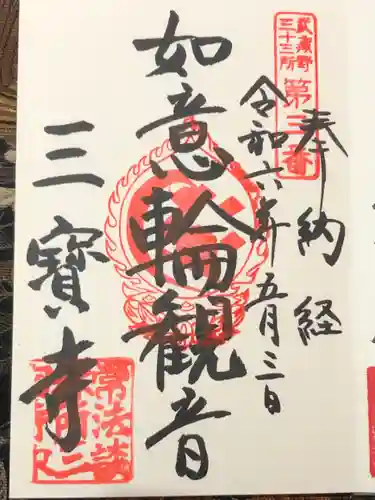 武蔵野
三十三所
第三番
奉納経
令和六年五月三日
如意輪観音
三寳寺